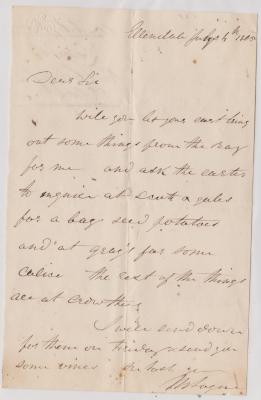 July 4th 18
Dear Sir
Will you let your cart bring
out some things from the Bay
for me and ask the carter
to inquire at Scott & Gales
for a bag seed potatoes
and at Gray's for some
the rest of the things
are at Crowthers
I will send down
for them on Friday & send you
some vines